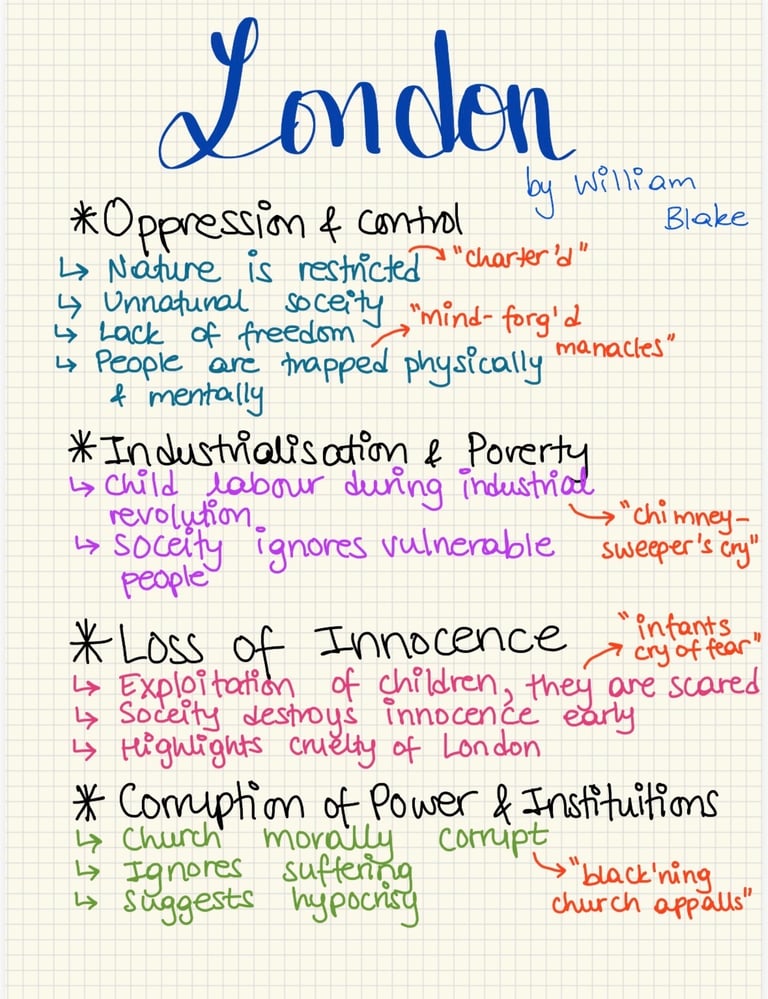 London
by William
Blake
*Oppression & control
↳ Nature is restricted → "charter'd"
↳ Unnatural soceity
↳ Lack of freedom → "mind-forg'd
manacles"
↳ People are trapped physically
& mentally
*Industrialisation & Poverty
↳ Child labour during industrial
revolution → "chimney-
sweeper's cry"
↳ soceity ignores vulnerable
people
*Loss of Innocence → "infants
cry of fear"
↳ Exploitation of children, they are scared
↳ Soceity destroys innocence early
↳ Highlights cruelty of London
* Corruption of Power & Instituitions
↳ Church morally corrupt
↳ Ignores suffering → "black'ning
church appalls"
↳ suggests hypocrisy